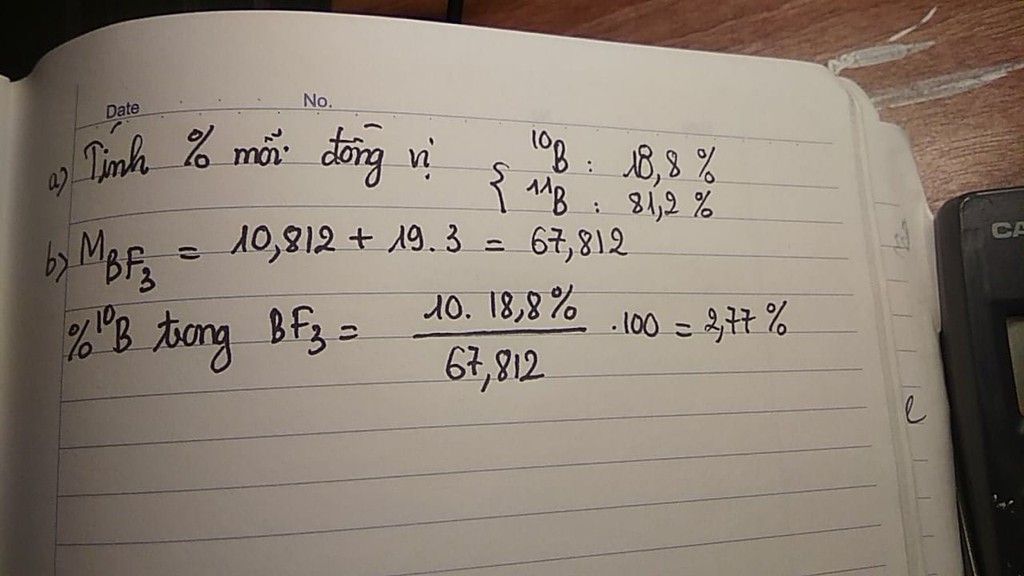 Date No.
a) Tính % mỗi đồng vị { ¹⁰B : 18,8 %
¹¹B : 81,2 %
b) M BF₃ = 10,812 + 19.3 = 67,812
% ¹⁰B trong BF₃ = 10. 18,8% / 67,812 .100 = 2,77 %
CA
e